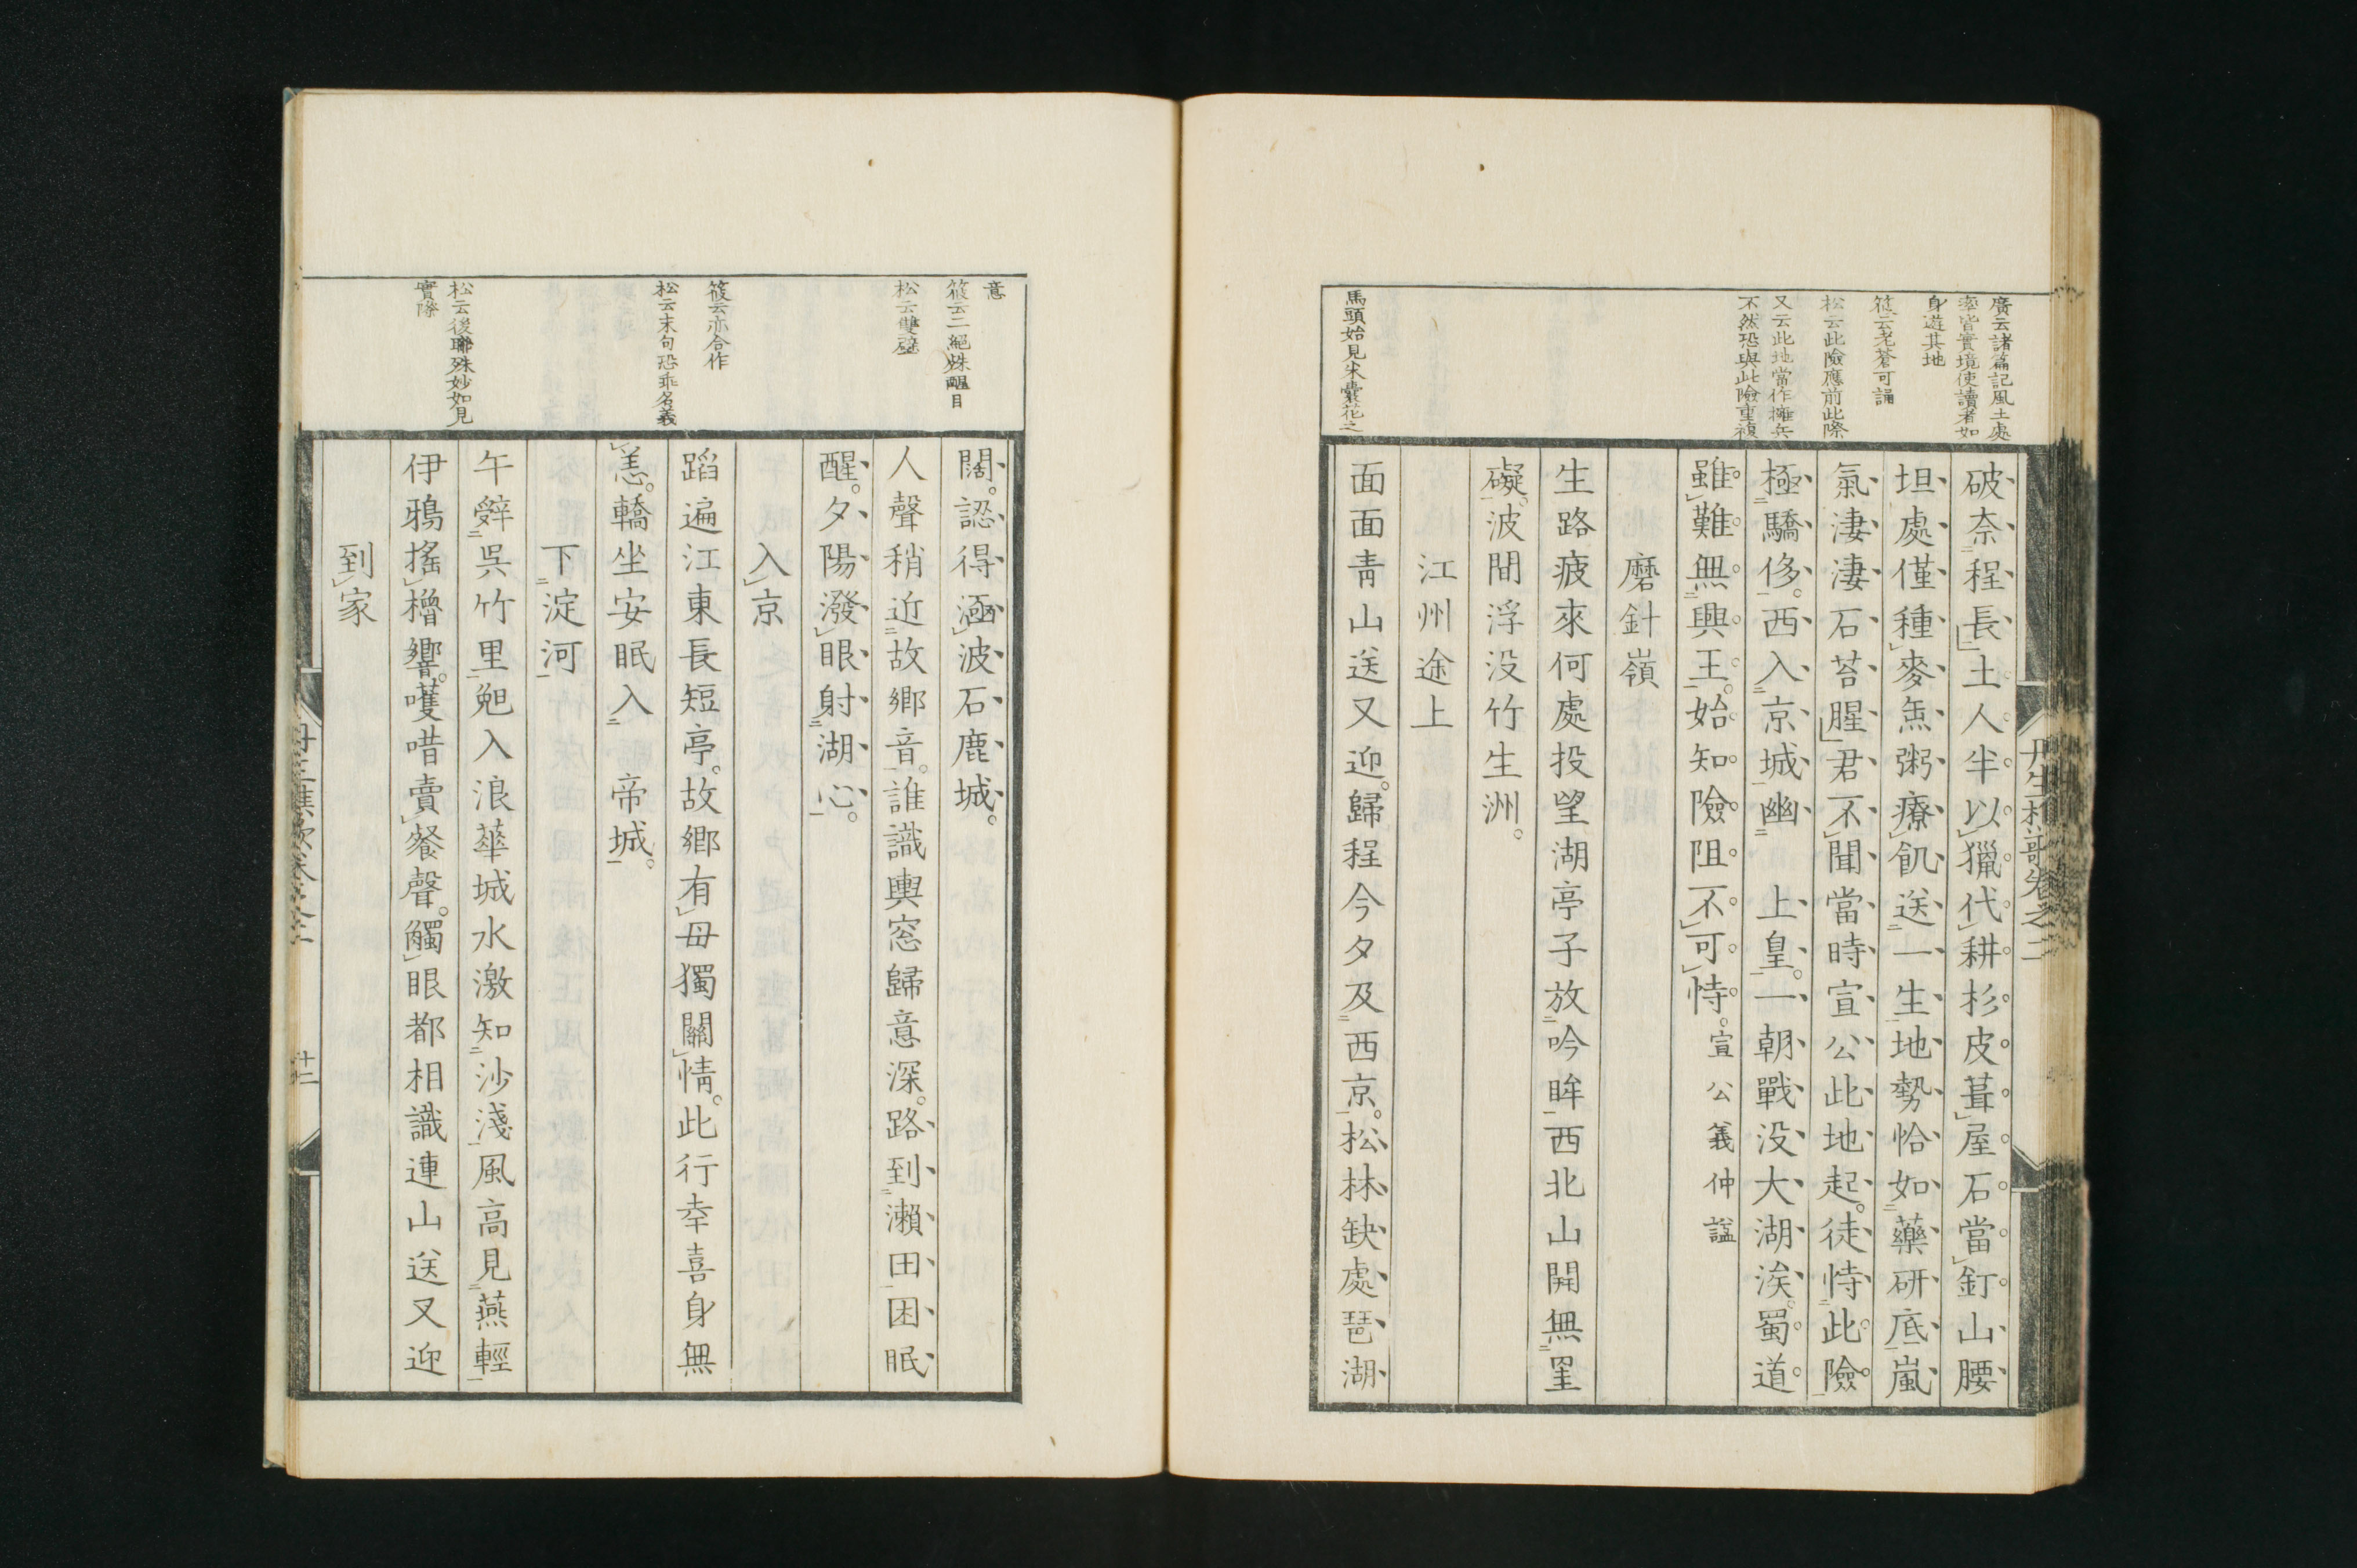 廣云諸篇記風土處
率皆實境使讀者如
身遊其地
筱云老蒼可誦
松云此險應前此際
又云此地當作擁兵
不然恐與此險重複
馬頭始見米囊花之
破奈程長土人半以獵代耕杉皮葺屋石當釘山腰
坦處僅種麥䰞粥療飢送一生地勢恰如藥研底嵐
氣淒淒石苔腥君不聞當時宣公此地起徒恃此險
極驕侈西入京城幽 上皇一朝戰没大湖涘蜀道
雖難無興王始知險阻不可恃宣公義仲謚
磨針嶺
生路疲來何處投望湖亭子放吟眸西北山開無罣
礙波間浮没竹生洲
江州途上
面面青山送又迎歸程今夕及西京松林缺處琵湖
丹生樵歌卷之二
意
筱云二絕殊醒目
松云雙璧
筱云亦合作
松云末句恐乖名義
松云後聯殊妙如見
實際
闊認得涵波石鹿城
人聲稍近故鄉音誰識輿窓歸意深路到瀨田困眠
醒夕陽潑眼射湖心
入京
蹈遍江東長短亭故鄉有母獨關情此行幸喜身無
恙轎坐安眠入 帝城
下淀河
午辤吳竹里晚入浪華城水激知沙淺風高見燕輕
伊鴉搖櫓響嚄唶賣餐聲觸眼都相識連山送又迎
到家
丹生樵歌卷之二
十二